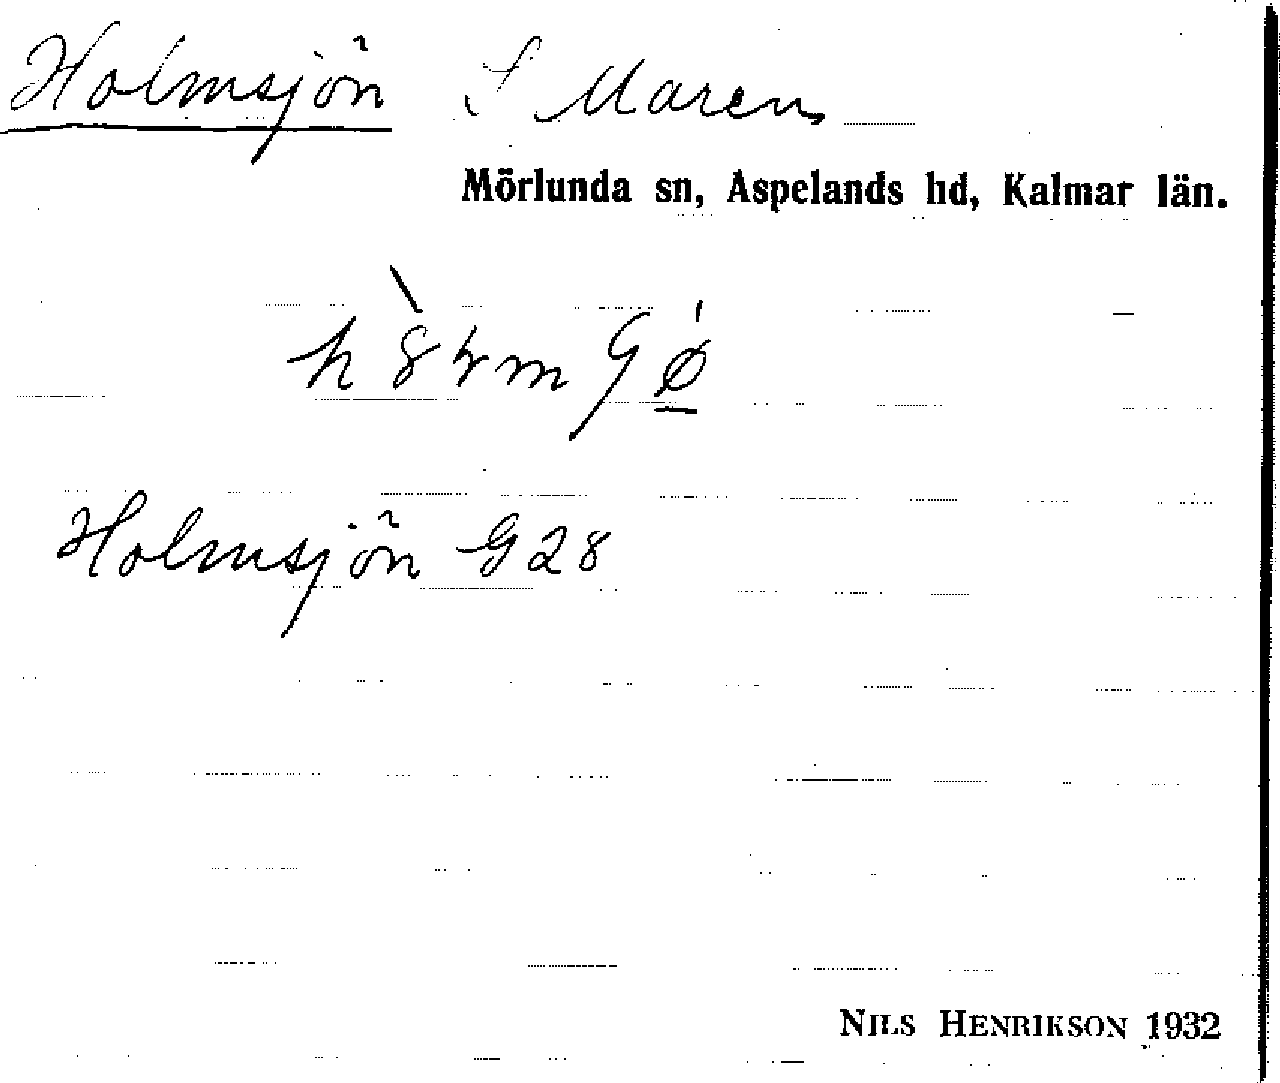 Holmsjön S Maren
Mörlunda sn, Aspelands hd, Kalmar län.
Holmsjön G 28
NILS HENRIKSON 1932